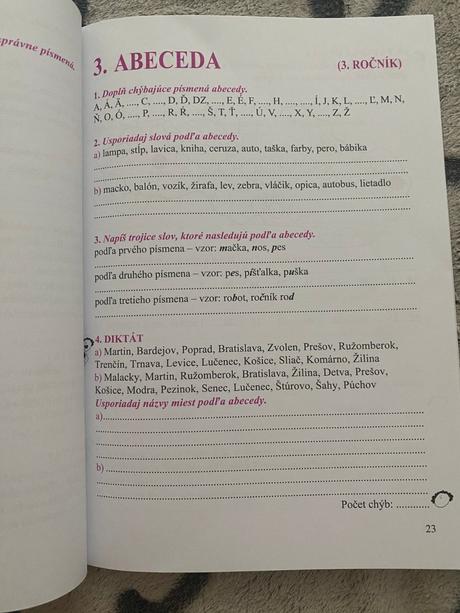 správne písmená.
3. ABECEDA (3. ROČNÍK)
1. Doplň chýbajúce písmená abecedy.
A, Á, Ä, ...., C, ...., D, Ď, DZ, ...., E, É, F, ...., H, ...., ...., Í, J, K, L, ...., Ľ, M, N,
Ň, O, Ó, ...., P, ...., R, Ŕ, ...., Š, T, Ť, ...., Ú, V, ...., X, Y, ...., Z, Ž
2. Usporiadaj slová podľa abecedy.
a) lampa, stĺp, lavica, kniha, ceruza, auto, taška, farby, pero, bábika
b) macko, balón, vozík, žirafa, lev, zebra, vláčik, opica, autobus, lietadlo
3. Napíš trojice slov, ktoré nasledujú podľa abecedy.
podľa prvého písmena – vzor: mačka, nos, pes
podľa druhého písmena – vzor: pes, píšťalka, puška
podľa tretieho písmena – vzor: robot, ročník rod
4. DIKTÁT
a) Martin, Bardejov, Poprad, Bratislava, Zvolen, Prešov, Ružomberok,
Trenčín, Trnava, Levice, Lučenec, Košice, Sliač, Komárno, Žilina
b) Malacky, Martin, Ružomberok, Bratislava, Žilina, Detva, Prešov,
Košice, Modra, Pezinok, Senec, Lučenec, Štúrovo, Šahy, Púchov
Usporiadaj názvy miest podľa abecedy.
a)
b)
Počet chýb: ............
23